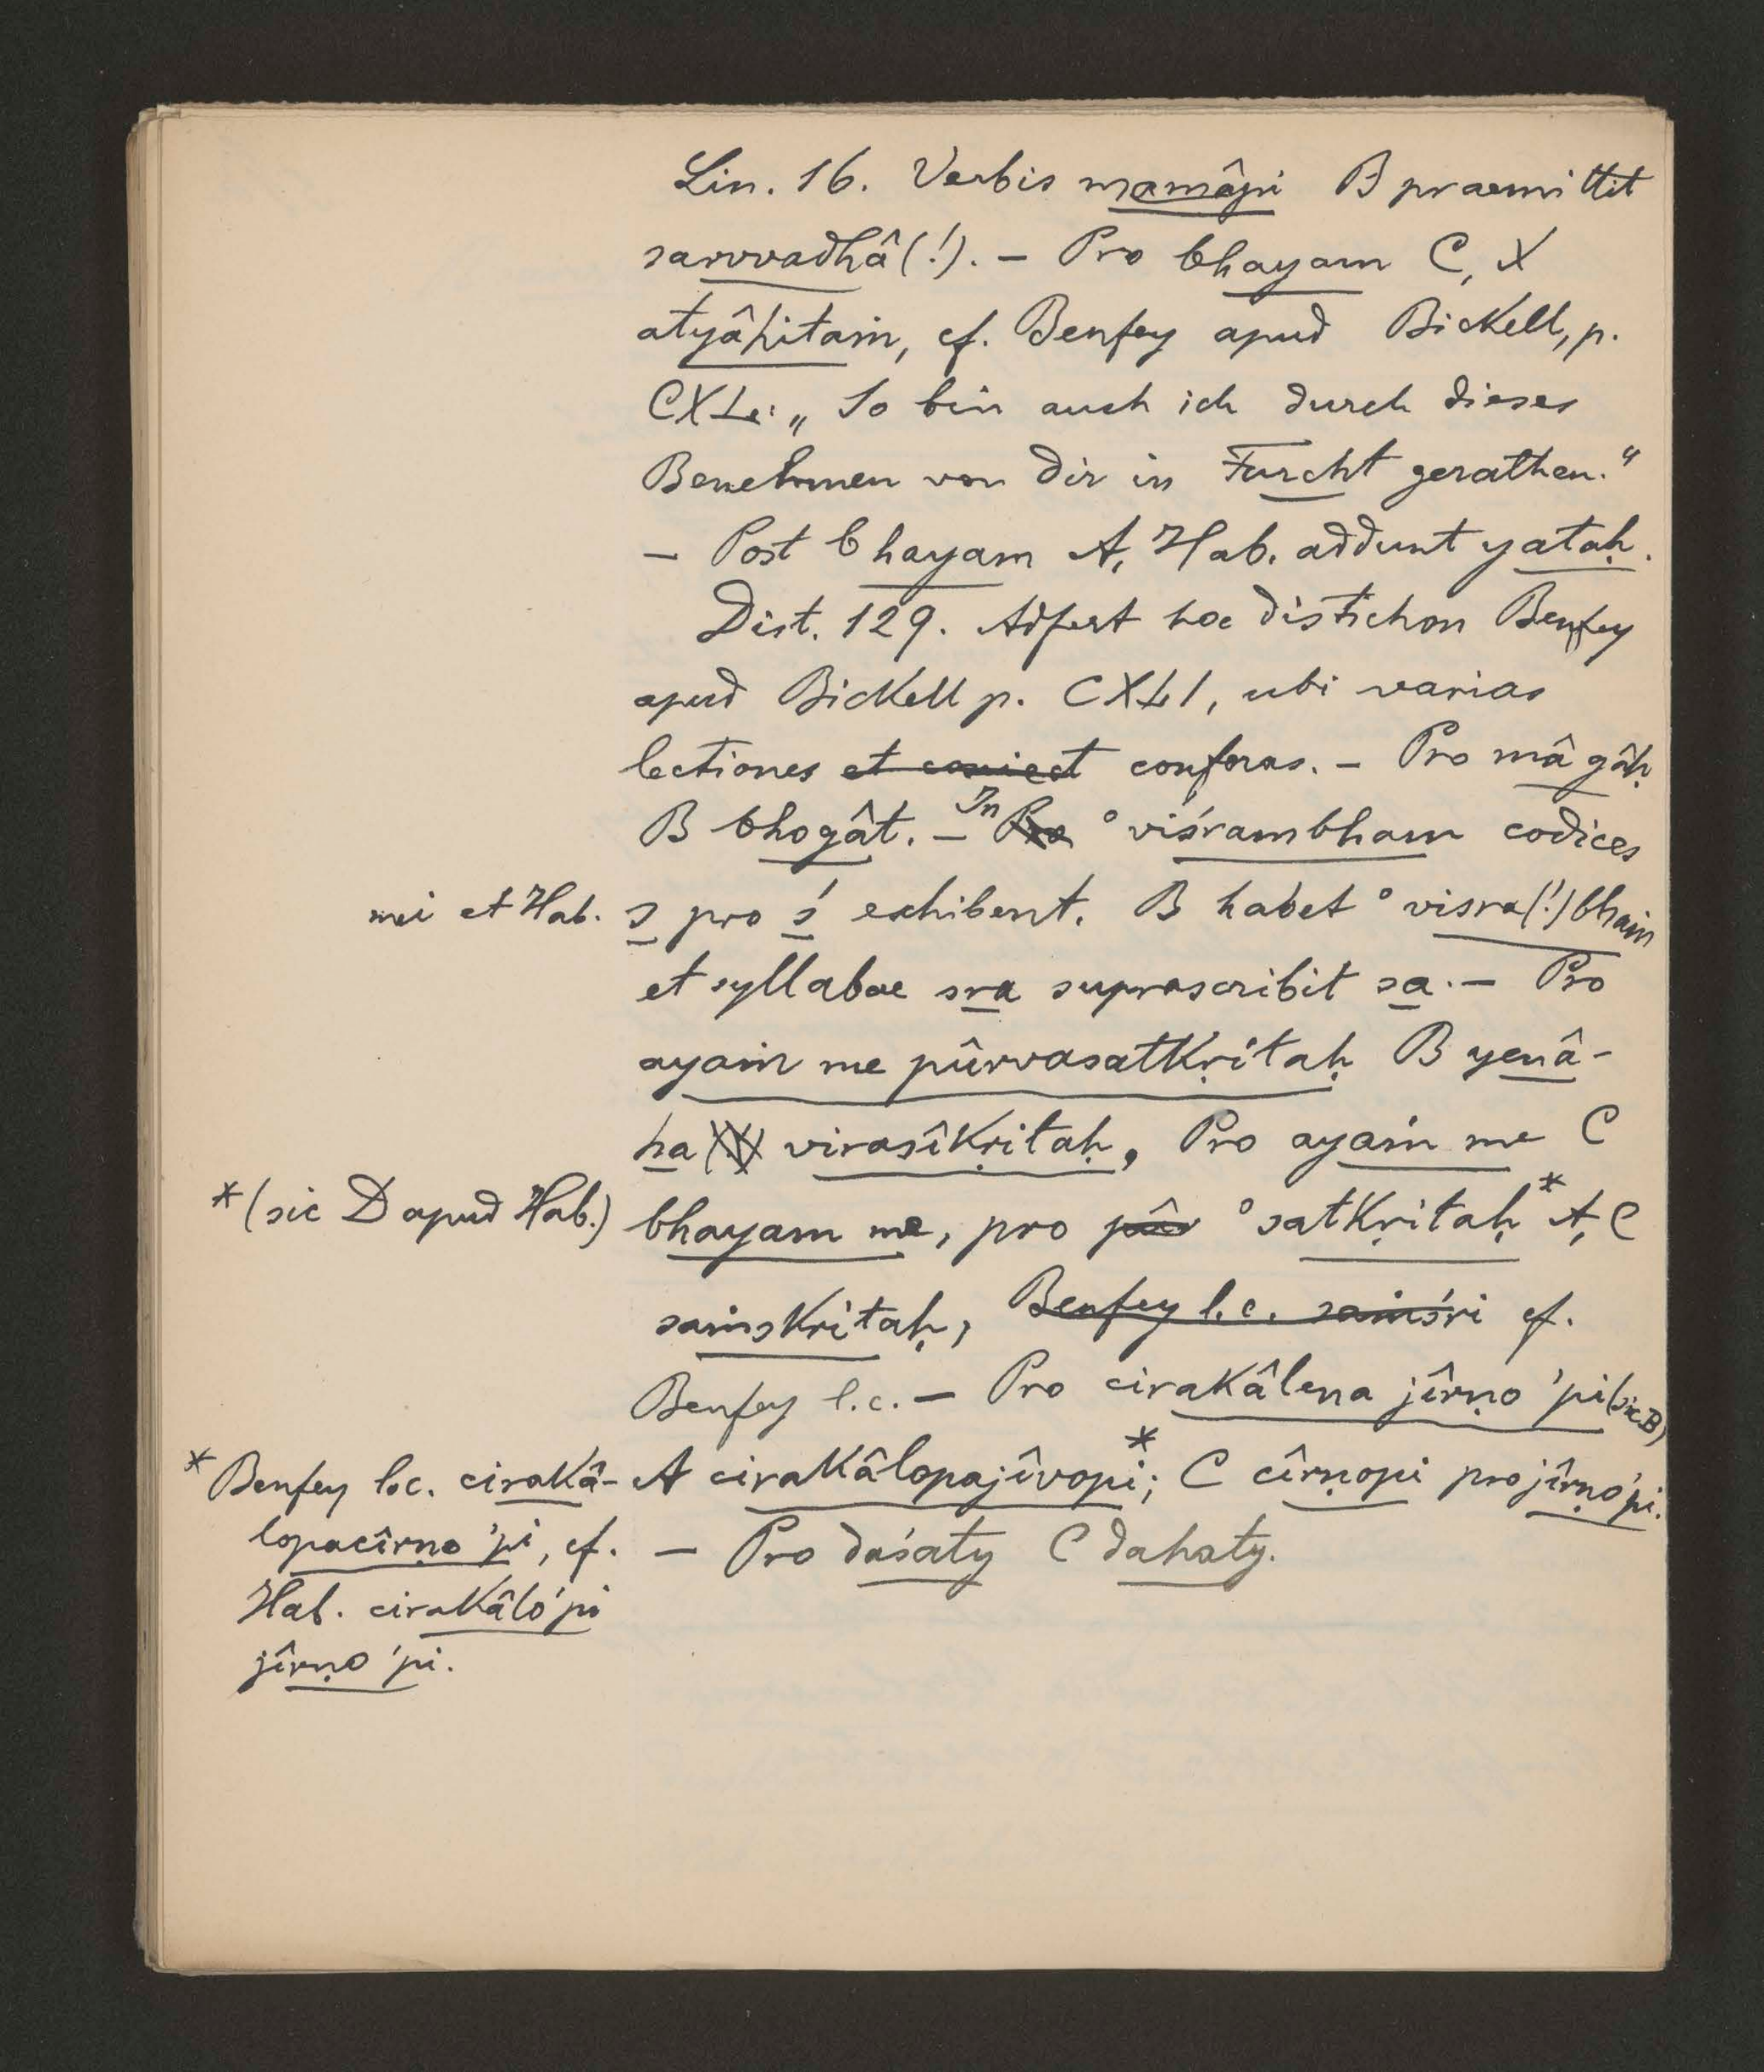 Lin. 16. Verbis mamâpi B praemittit
sarvvadhâ(!). – Pro bhayam C, X
atyâhitaṁ, cf. Benfey apud Bickell, p.
CXL: „So bin auch ich durch dieses
Benehmen von dir in Furcht gerathen.“
– Post bhayam A, Hab. addunt yataḥ.
Dist. 129. Adfert hoc distichon Benfey
apud Bickell p. CXLI, ubi varias
lectiones et coniect conferas. – Pro mâ gâḥ
B bhogât. – In Pro °viśrambham codices
mei et Hab. s pro ś exhibent. B habet °visra(!)bhaṁ
et syllabae sra suprascribit sa. – Pro
ayaṁ me pûrvasatkṛitaḥ B yenâ-
ha(!) virasîkṛitaḥ, Pro ayaṁ me C
*(sic D apud Hab.) bhayam me, pro pûr °satkṛitaḥ* A, C
saṁskritaḥ, Benfey l.c. saṁśri cf.
Benfey l.c. – Pro cirakâlena jîrṇo 'pi (sic B)
A cirakâlopajîvopi*; C cîrṇopi pro jîrṇo'pi.
– Pro daśaty C dahaty.
* Benfey l.c. cirakâ-
lopacîrṇo 'pi, cf.
Hab. cirakâlo'pi
jîrṇo 'pi.